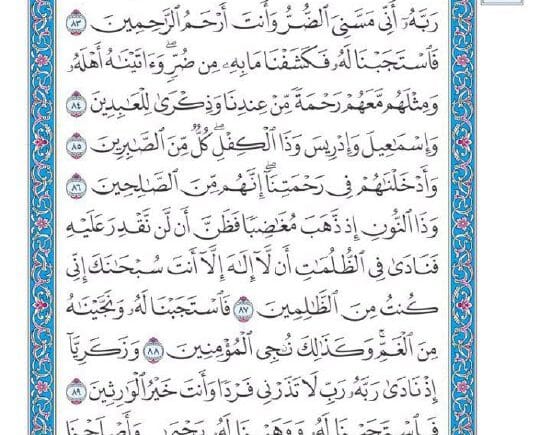 رَبَّهُۥٓ أَنِّي مَسَّنِيَ ٱلضُّرُّ وَأَنتَ أَرۡحَمُ ٱلرَّٰحِمِينَ ٨٣
فَٱسۡتَجَبۡنَا لَهُۥ فَكَشَفۡنَا مَا بِهِۦ مِن ضُرّٖۖ وَءَاتَيۡنَٰهُ أَهۡلَهُۥ
وَمِثۡلَهُم مَّعَهُمۡ رَحۡمَةٗ مِّنۡ عِندِنَا وَذِكۡرَىٰ لِلۡعَٰبِدِينَ ٨٤
وَإِسۡمَٰعِيلَ وَإِدۡرِيسَ وَذَا ٱلۡكِفۡلِۖ كُلّٞ مِّنَ ٱلصَّٰبِرِينَ ٨٥
وَأَدۡخَلۡنَٰهُمۡ فِي رَحۡمَتِنَآۖ إِنَّهُم مِّنَ ٱلصَّٰلِحِينَ ٨٦
وَذَا ٱلنُّونِ إِذ ذَّهَبَ مُغَٰضِبٗا فَظَنَّ أَن لَّن نَّقۡدِرَ عَلَيۡهِ
فَنَادَىٰ فِي ٱلظُّلُمَٰتِ أَن لَّآ إِلَٰهَ إِلَّآ أَنتَ سُبۡحَٰنَكَ إِنِّي
كُنتُ مِنَ ٱلظَّٰلِمِينَ ٨٧ فَٱسۡتَجَبۡنَا لَهُۥ وَنَجَّيۡنَٰهُ
مِنَ ٱلۡغَمِّۚ وَكَذَٰلِكَ نُـۨجِي ٱلۡمُؤۡمِنِينَ ٨٨ وَزَكَرِيَّآ
إِذۡ نَادَىٰ رَبَّهُۥ رَبِّ لَا تَذَرۡنِي فَرۡدٗا وَأَنتَ خَيۡرُ ٱلۡوَٰرِثِينَ ٨٩
فَٱسۡتَجَبۡنَا لَهُۥ وَوَهَبۡنَا لَهُۥ يَحۡيَىٰ وَأَصۡلَحۡنَا